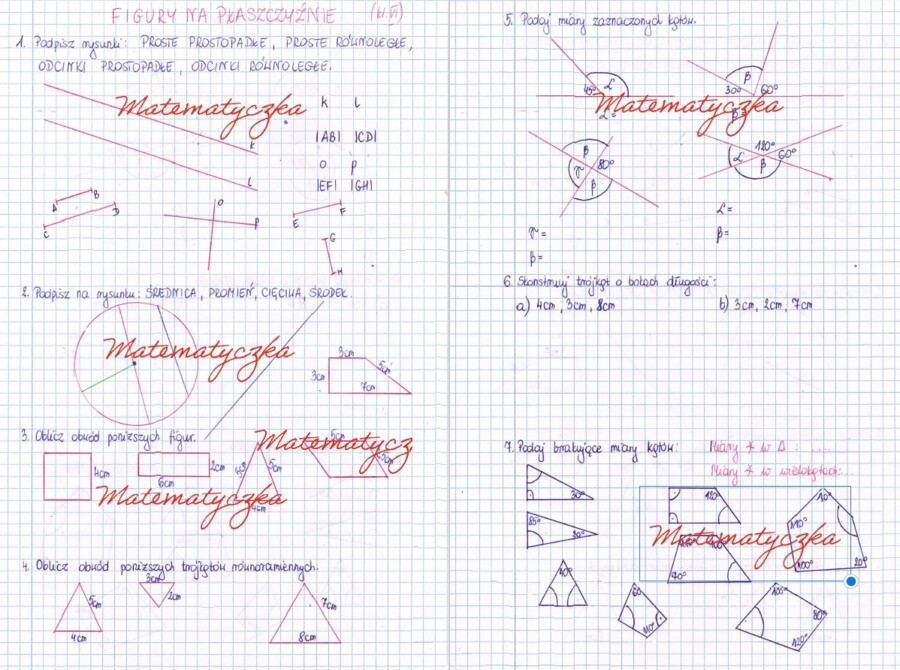 FIGURY NA PŁASZCZYŹNIE (kl.VI)
1. Podpisz rysunki: PROSTE PROSTOPADŁE, PROSTE RÓWNOLEGŁE,
ODCINKI PROSTOPADŁE, ODCINKI RÓWNOLEGŁE.
Matematyczka
k l
|AB| |CD|
o p
|EF| |GH|
k
l
A B
C D
O
P
E F
G
H
2. Podpisz na rysunku: ŚREDNICA, PROMIEŃ, CIĘCIWA, ŚRODEK.
Matematyczka
3cm
3cm 5cm
7cm
3. Oblicz obwód poniższych figur.
Matematycz
4cm
2cm
6cm
5cm
4cm
Matematyczka
4. Oblicz obwód poniższych trójkątów równoramiennych.
5cm
4cm
3cm
2cm
7cm
8cm
5. Podaj miary zaznaczonych kątów.
45° α
β
30° 60°
Matematyczka
β
γ 80°
β
120°
α 60°
β
γ=
β=
α=
β=
6. Skonstruuj trójkąt o bokach długości:
a) 4cm, 3cm, 8cm b) 3cm, 2cm, 7cm
7. Podaj brakujące miary kątów: Miary ∢ w Δ :
Miary ∢ w wielokątach:
30°
85°
30°
40°
120°
Matematyczka
70°
110°
100°
20°
110°
80°
120°